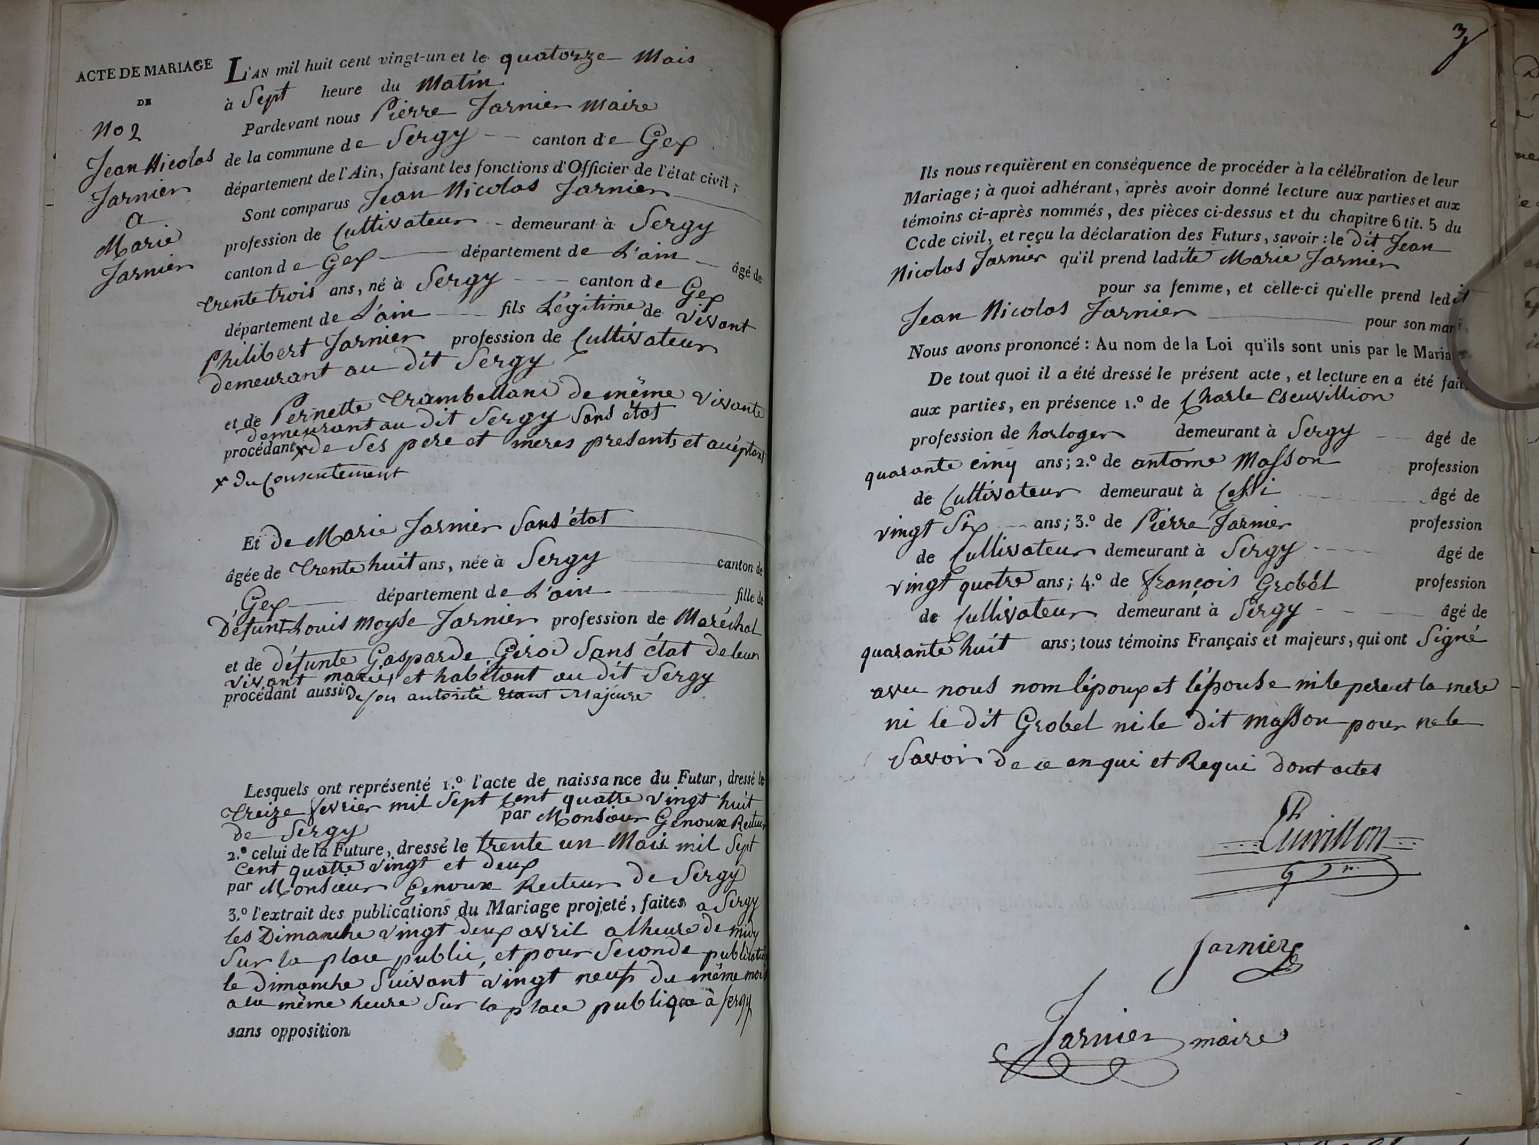 ACTE DE MARIAGE
DE
No 2
Jean Nicolas
Jarnier
a
Marie
Jarnier
L'AN mil huit cent vingt-un et le quatorze Mais
à Sept heure du Matin
Pardevant nous Pierre Jarnier Maire
de la commune de Sergy canton de Gex
département de l'Ain, faisant les fonctions d'Officier de l'état civil ;
Sont comparus Jean Nicolas Jarnier
profession de Cultivateur demeurant à Sergy
canton de Gex département de L'ain âgé de
trente trois ans, né à Sergy canton de Gex
département de L'ain fils Légitime de vivant
Philibert Jarnier profession de Cultivateur
demeurant au dit Sergy
et de Pernette Trambelland de même vivante
demeurant au dit Sergy Sans état
procédant x de Ses pere et meres presents et acéptant
x du Consentement
Et de Marie Jarnier Sans état
âgée de trente huit ans, née à Sergy canton de
Gex département de L'ain fille de
Défunt Louis Moyse Jarnier profession de Maréchal
et de défunte Gasparde Girod Sans état de leur
vivant mariés et habitant au dit Sergy
procédant aussi de son autorité etant Majeure
Lesquels ont représenté 1.º l'acte de naissance du Futur, dressé le
Treize fevrier mil Sept Cent quatre vingt huit
de Sergy par Monsieur Genoux Recteur
2.º celui de la Future, dressé le trente un Mais mil Sept
Cent quatre vingt et deux
par Monsieur Genoux Recteur de Sergy
3.º l'extrait des publications du Mariage projeté, faites a Sergy
les Dimanche vingt deux avril a lheure de midy
Sur la place public, et pour Seconde publication
le dimanche Suivant vingt neuf du même mois
a la même heure Sur la place publique à Sergy
sans opposition
3
Ils nous requièrent en conséquence de procéder à la célébration de leur
Mariage ; à quoi adhérant, après avoir donné lecture aux parties et aux
témoins ci-après nommés, des pièces ci-dessus et du chapitre 6 tit. 5 du
Code civil, et reçu la déclaration des Futurs, savoir : le dit Jean
Nicolas Jarnier qu'il prend ladite Marie Jarnier
pour sa femme, et celle-ci qu'elle prend ledit
Jean Nicolas Jarnier pour son mari
Nous avons prononcé : Au nom de la Loi qu'ils sont unis par le Maria
De tout quoi il a été dressé le présent acte, et lecture en a été fait
aux parties, en présence 1.º de Charle
profession de horloger demeurant à Sergy âgé de
quarante cinq ans ; 2.º de antoine Masson profession
de Cultivateur demeuraut à Cessi âgé de
vingt Six ans ; 3.º de Pierre Jarnier profession
de Cultivateur demeurant à Sergy âgé de
vingt quatre ans ; 4.º de françois Grobel profession
de Cultivateur demeurant à Sergy âgé de
quarante huit ans ; tous témoins Français et majeurs, qui ont Signé
avec nous nom l'époux et l'épouse ni le pere et la mere
ni le dit Grobel ni le dit masson pour ne le
Savoir de ce enqui et Requi dont actes
Jarnier
Jarnier maire